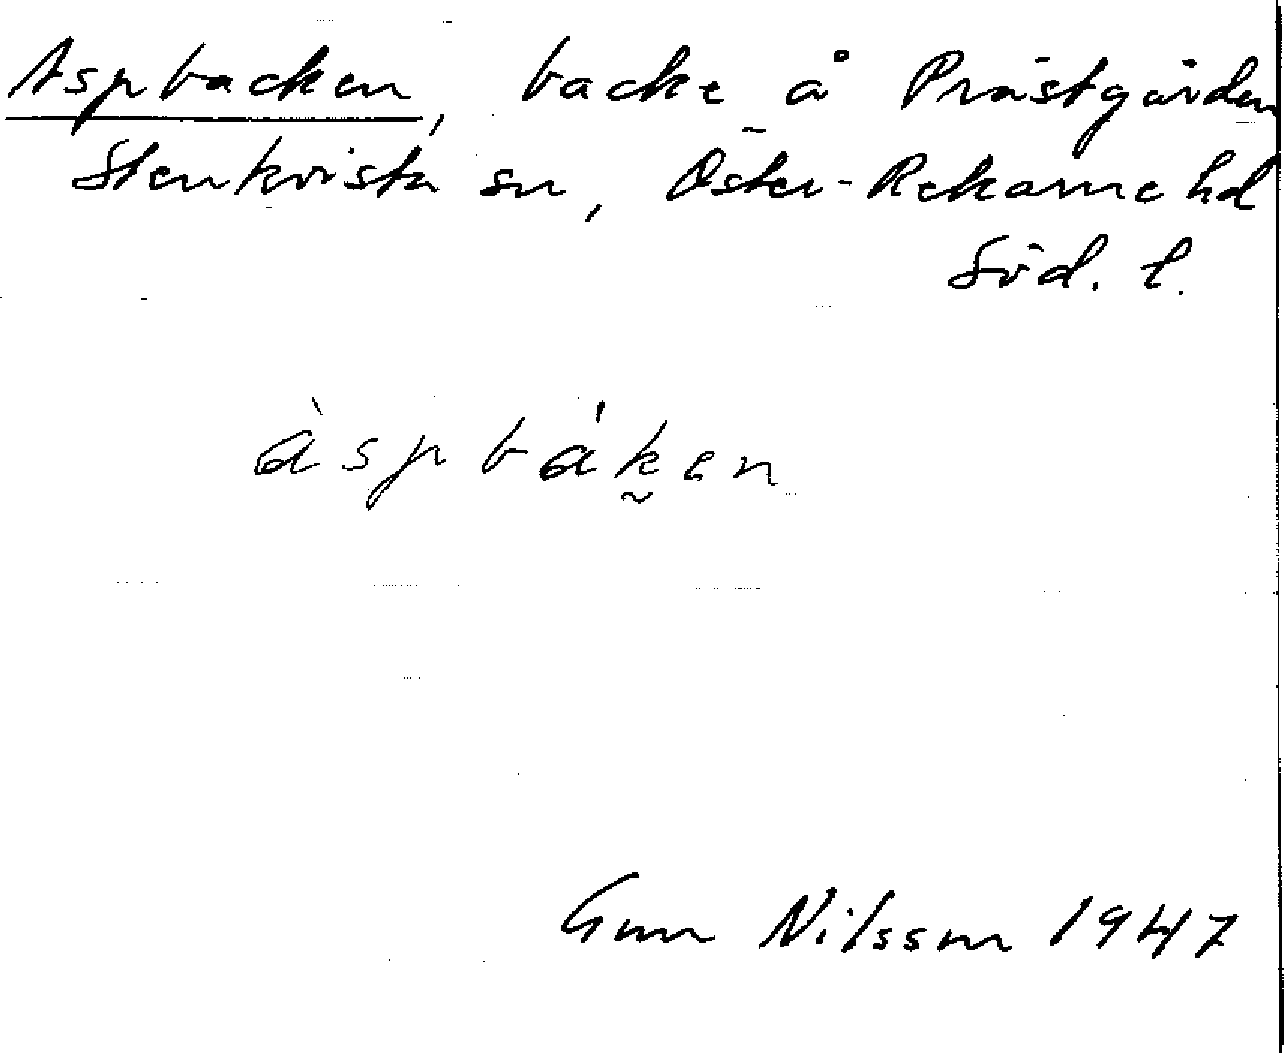 Aspbacken, backe å Prästgården
Stenkvista sn, Öster-Rekarne hd
Söd. l.
àspbák̰en
Gun Nilsson 1947